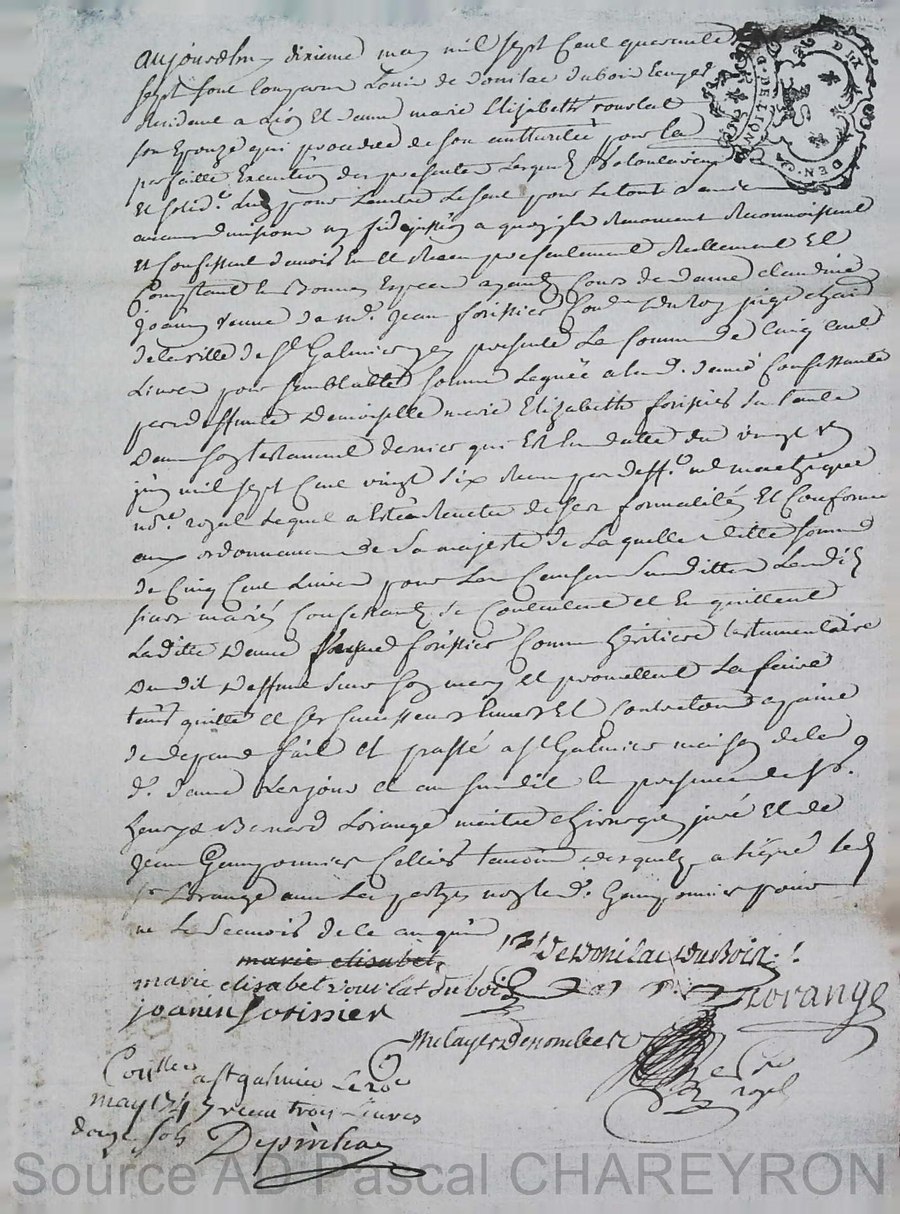 aujourdhuy dixieme may mil sept cent quarante
sept sont comparus Louis de Donilac dubois
Residant a Lion Et dame marie Elizabeth vourlat
son Epouze qui procedde de son authorité pour la
des presentes Lesquels volontairement
Et solid.t Lun pour Lautre Le seul pour Le tout
a quoy ils Renoncent Reconnoissent
Et Confessent davoir Eu Et Receu presentement Reellement Et
Comptant En Bonnes Especes ayant Cours de dame claudine
joanin veuve de m.r jean forissier
de la ville de S.t Galmier presente La somme de Cinq cent
Livres pour semblable somme Leguée a lad. dame Confessante
par deffunte Demoiselle marie Elizabeth forissier sa tante
Dans son testament dernier qui Est En datte du vingt
juin mil sept cent vingt six Receu par deff.t
no.re royal Lequel a Esté Revetu de ses formalités Et Conforme
aux ordonnances de Sa majesté de Laquelle ditte somme
de Cinq Cent Livres pour Les Causes Susdittes Lesdits
sieurs mariés Confessants se Contentent et En quittent
Laditte Dame forissier Comme heritiere testamentaire
Dudit Deffunt sieur son mary Et promettent La faire
tenir quitte et ses successeurs Envers Et Contre tous a peine
de depens fait Et passé a S.t Galmier maison de la
d.e dame Les jour et an susdit En presence de s.r
henry Benard Lorange maitre chirurgien juré Et de
jean Ganyonnier Cellier temoins Lesquels a signé Led
s.r Lorange avec Les parties non Le d.t Ganyonnier pour
ne Le Scavoir de ce anquis
marie elisabet
De Donilac Dubois
marie elisabet vourlat dubois
Lorange
joanin forissier
No.re royal
Con.llee a St galmier Le 20e
may 1747 receu trois Livres
douze sols Depinhac
Source AD Pascal CHAREYRON